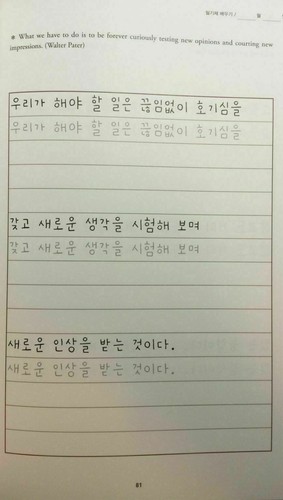 필기체 배우기 / 월
※ What we have to do is to be forever curiously testing new opinions and courting new
impressions. (Walter Pater)
우리가 해야 할 일은 끊임없이 호기심을
우리가 해야 할 일은 끊임없이 호기심을
갖고 새로운 생각을 시험해 보며
갖고 새로운 생각을 시험해 보며
새로운 인상을 받는 것이다.
새로운 인상을 받는 것이다.
81